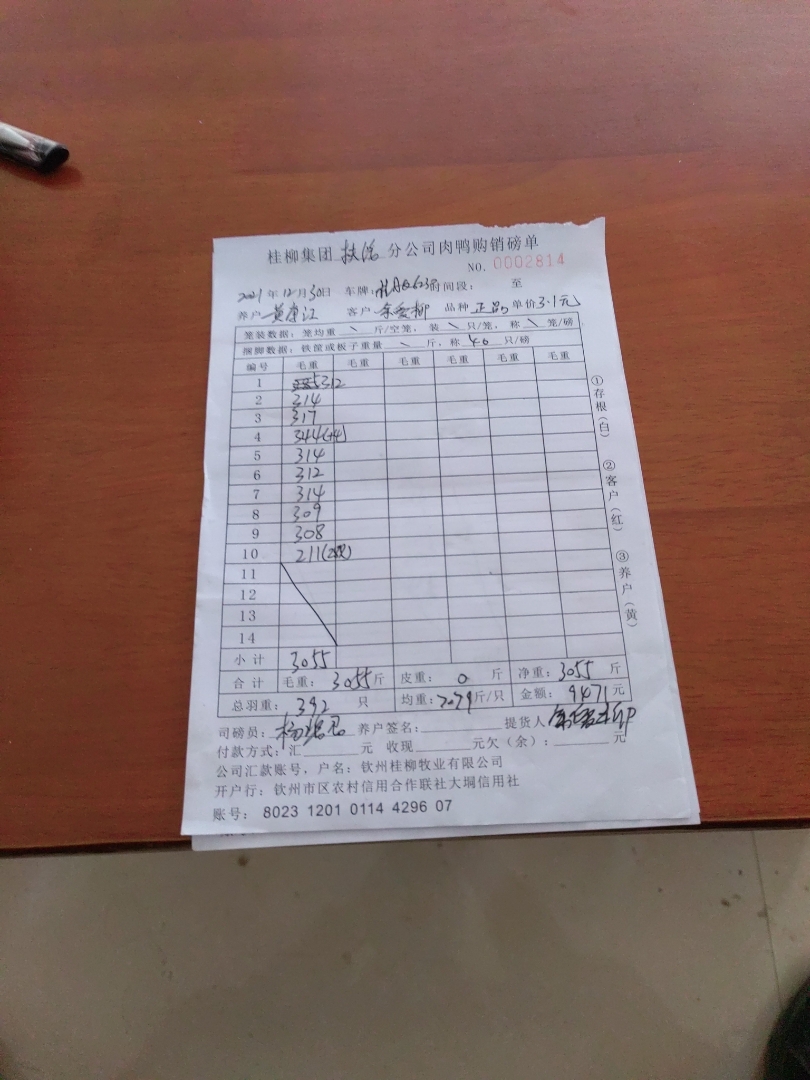 桂柳集团 扶活 分公司肉鸭购销磅单
NO. 0002814
2021年12月30日 车牌: 时间段: 至
养户 黄康江 客户 余爱柳 品种 正品 单价3.1元
笼装数据: 笼均重 \ 斤/空笼, 装 \ 只/笼, 称 \ 笼/磅
捆脚数据: 铁筐或板子重量 \ 斤, 称 40 只/磅
编号 毛重 毛重 毛重 毛重 毛重 毛重
1 312
2 314
3 317
4 344(44)
5 314
6 312
7 314
8 309
9 308
10 211(28只)
11
12
13
14
小计 3055
合计 毛重: 3055斤 皮重: 0 斤 净重: 3055 斤
总羽重: 392 只 均重: 7.79斤/只 金额: 9471元
司磅员: 养户签名: 提货人
付款方式: 汇 元 收现 元欠(余): 元
公司汇款账号, 户名: 钦州桂柳牧业有限公司
开户行: 钦州市区农村信用合作联社大垌信用社
账号: 8023 1201 0114 4296 07
①存根(白) ②客户(红) ③养户(黄)